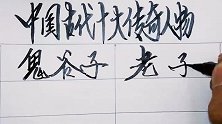 中国古代十大传奇人物
鬼谷子 老子